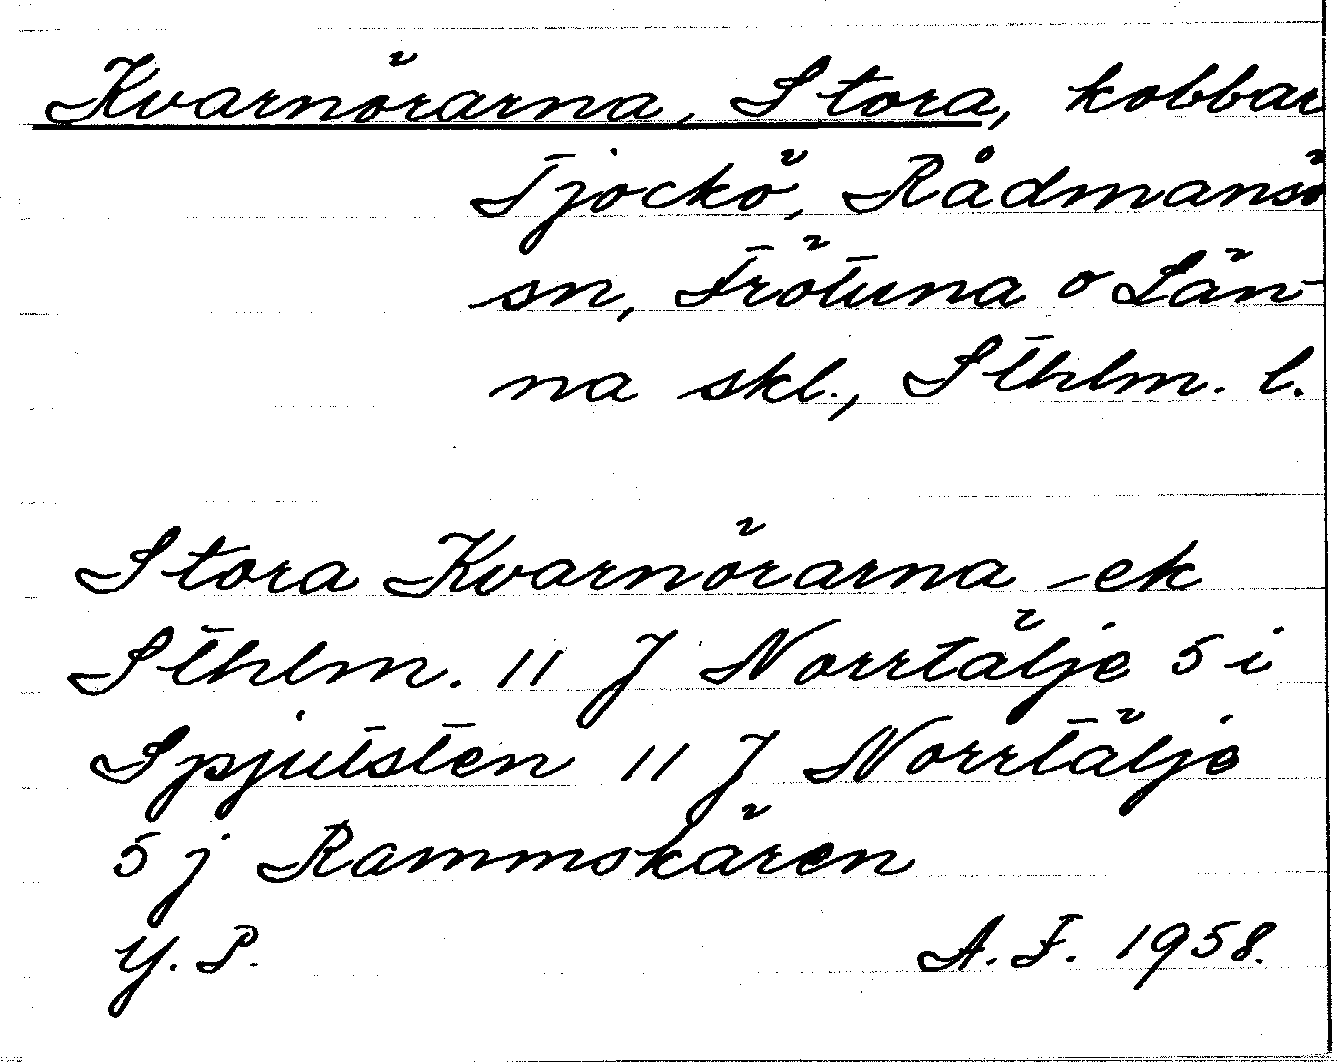 Kvarnörarna, Stora, kobbar
Tjockö, Rådmansö
sn, Frötuna o Län-
na skl., Sthlm. l.
Stora Kvarnörarna -ek
Sthlm. 11 J Norrtälje 5 i
Spjutsten 11 J Norrtälje
5 j Rammskären
Y. P. A. F. 1958.